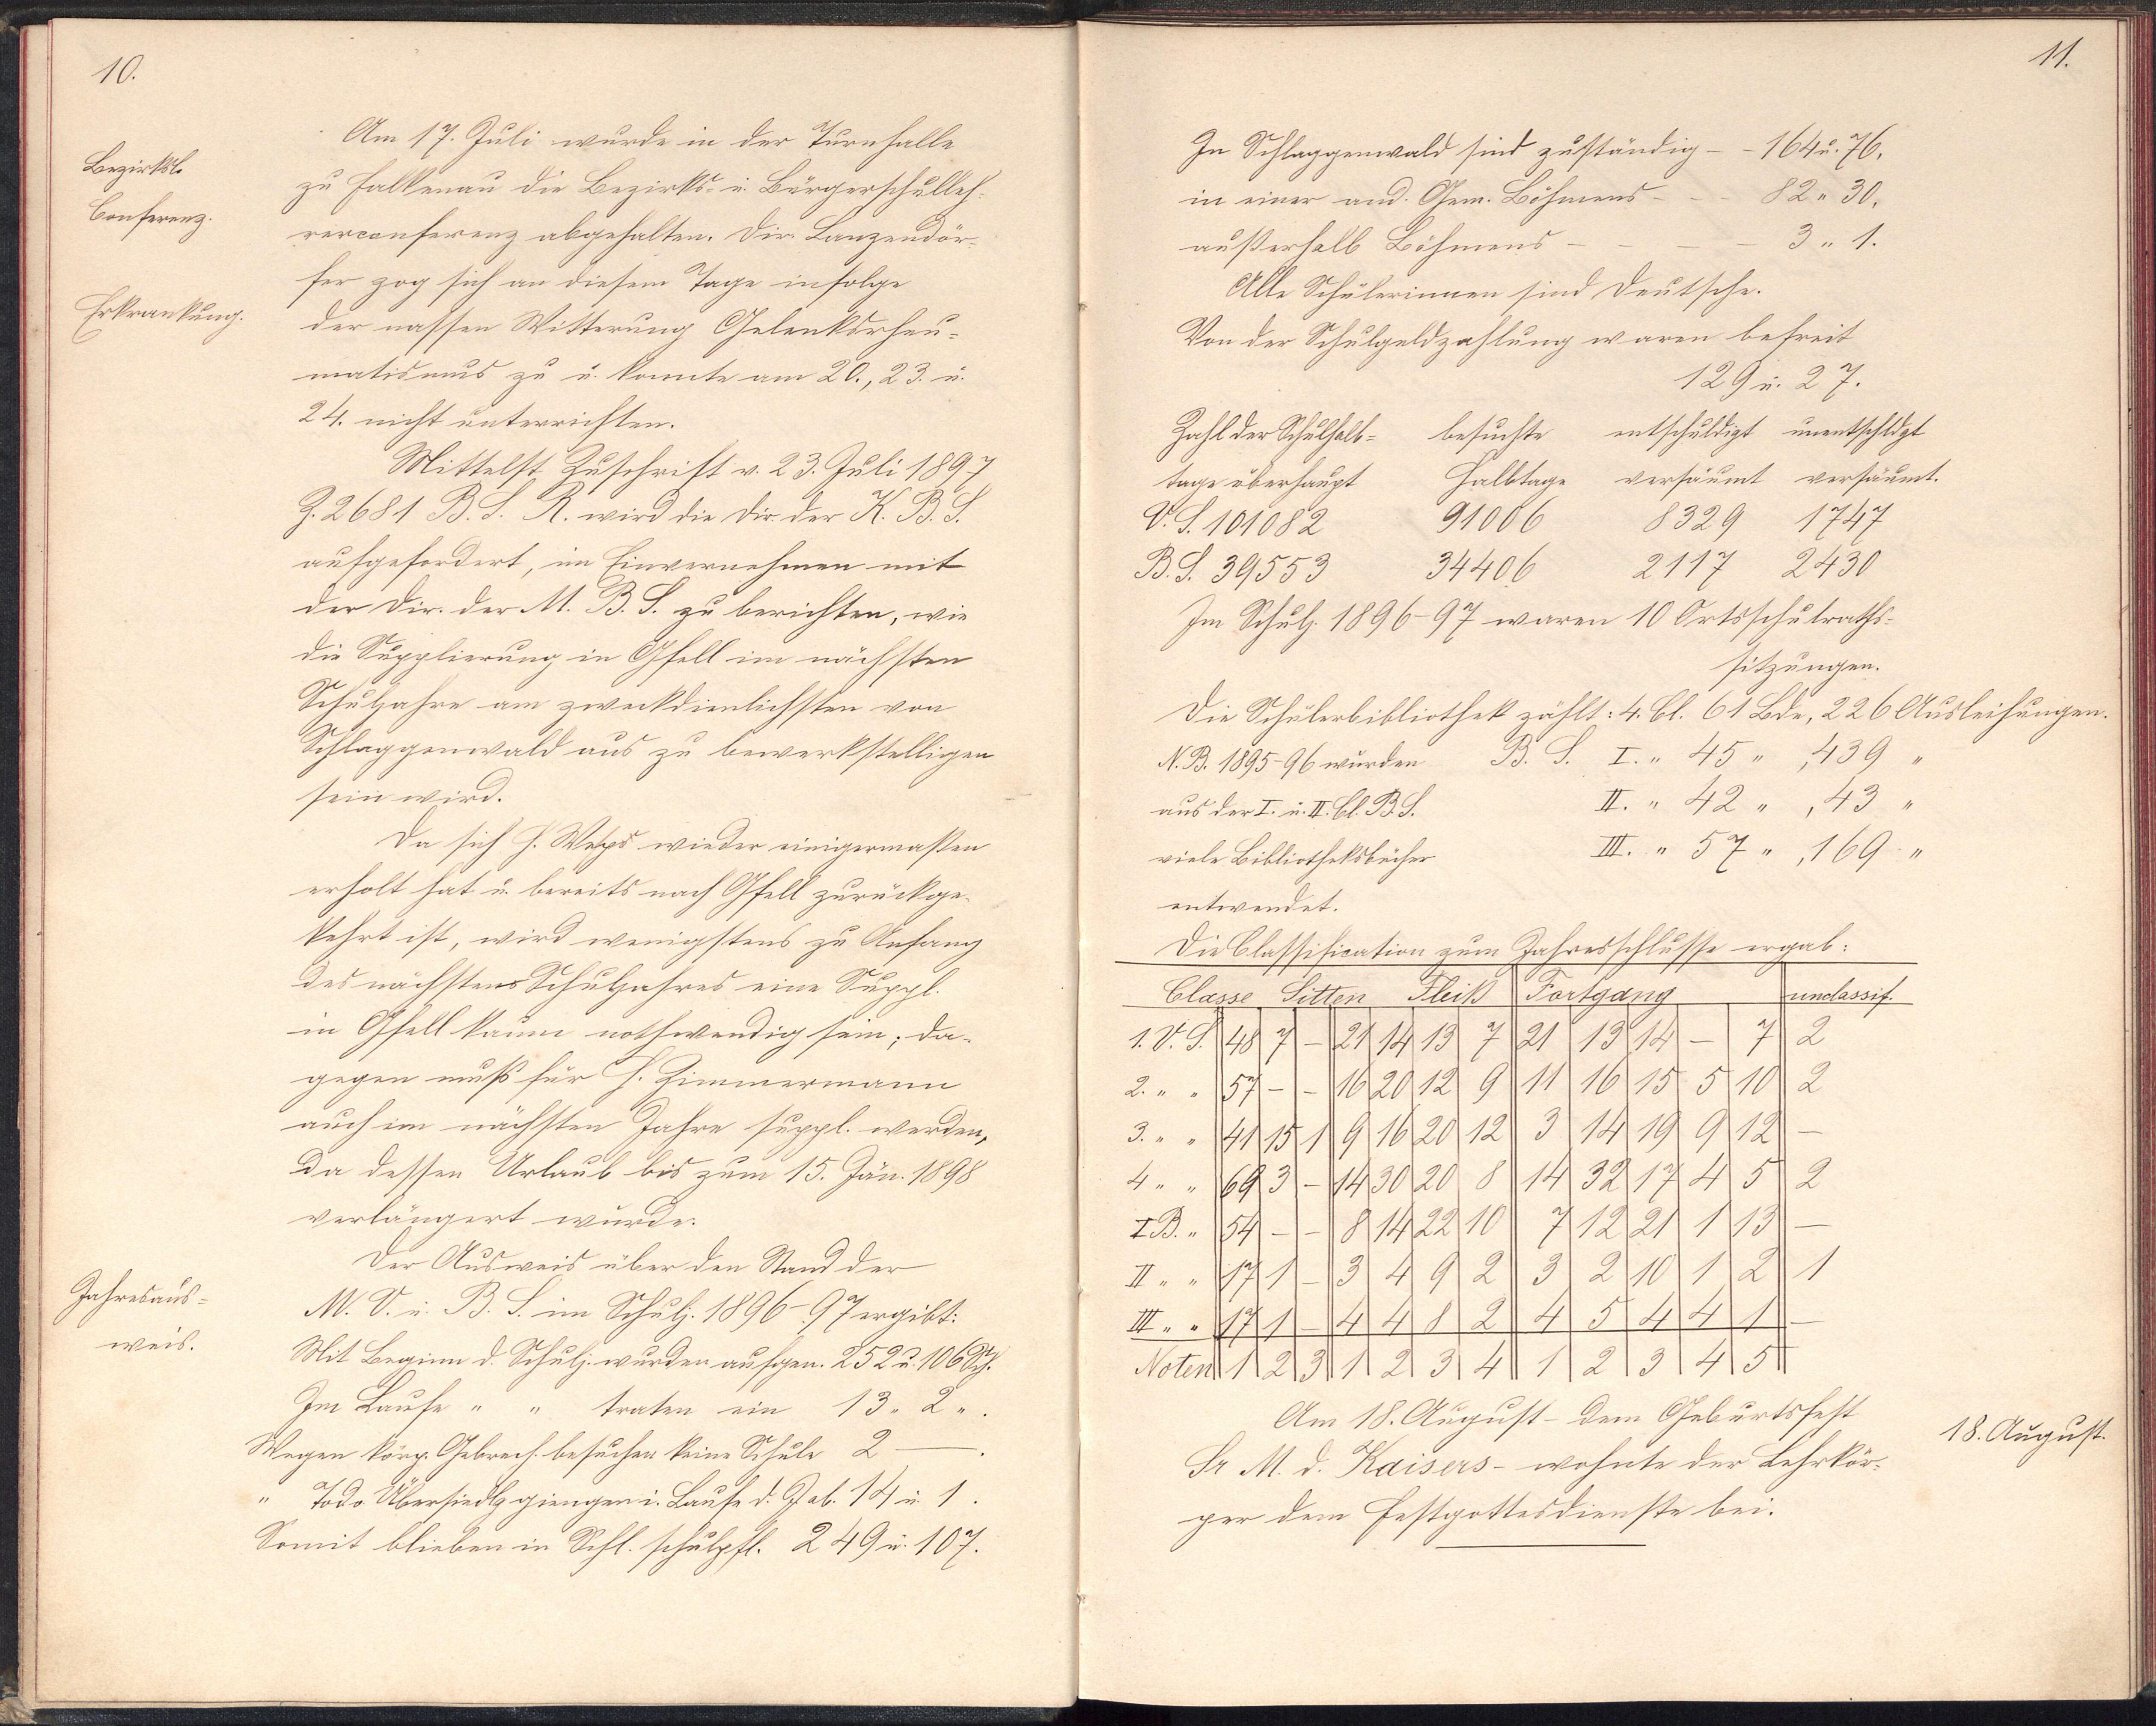 10.
Am 17. Juli wurde in der Turnhalle
Bezirksl.
zu Falkenau die Bezirks- u. Bürgerschulleh-
Conferenz.
rerconferenz abgehalten. Dir. Lanzendör-
fer zog sich an diesem Tage infolge
Erkrankung.
der nassen Witterung Gelenksrheu-
matismus zu u. konnte am 20., 23. u.
24. nicht unterrichten.
Mittelst Zuschrift v. 23. Juli 1897
Z. 2681 B. S. R. wird die Dir. der K. B. S.
aufgefordert, im Einvernehmen mit
der Dir. der M. B. S. zu berichten, wie
die Supplierung in Gfell im nächsten
Schuljahre am zweckdienlichsten von
Schlaggenwald aus zu bewerkstelligen
sein wird.
Da sich H. Weps wieder einigermaßen
erholt hat u. bereits nach Gfell zurückge-
kehrt ist, wird wenigstens zu Anfang
des nächstens Schuljahres eine Suppl.
in Gfell kaum nothwendig sein; da-
gegen muß für H. Zimmermann
auch im nächsten Jahre suppl. werden,
da dessen Urlaub bis zum 15. Jän. 1898
verlängert wurde.
Der Ausweis über den Stand der
Jahresaus-
M. V. u. B. S. im Schulj. 1896-97 ergibt:
weis.
Mit Beginn d. Schulj. wurden aufgen. 252 u. 106 Sch.
Im Laufe " " traten ein 13 " 2 ".
Wegen körp. Gebrech. besuchen keine Schule 2 —.
" Tod o. Übersiedlg giengen i. Laufe d. J. ab. 14 u. 1.
Somit blieben in Schl. schulpfl. 249 u. 107.
11.
In Schlaggenwald sind zuständig - - 164 u. 76,
in einer and. Gem. Böhmens - - - 82 " 30,
außerhalb Böhmens - - - - 3 " 1.
Alle Schülerinnen sind Deutsche.
Von der Schulgeldzahlung waren befreit
129 u. 27.
Zahl der Schulhalb- besuchte entschuldigt unentschldgt
tage überhaupt Halbtage versäumt versäumt.
V. S. 101082 91006 8329 1747
B. S. 39553 34406 2117 2430
Im Schulj. 1896-97 waren 10 Ortsschulraths-
sitzungen.
Die Schülerbibliothek zählt: 4. Cl. 61 Bde, 226 Ausleihungen.
N. B. 1895-96 wurden B. S. I. " 45 ", 439 "
aus der I. u. II. Cl. B. S. II. " 42 ", 43 "
viele Bibliotheksbücher III. " 57 ", 169 "
entwendet.
Die Classification zum Jahresschlusse ergab:
Classe Sitten Fleiß Fortgang unclassif.
1. V. S. 48 7 - 21 14 13 7 21 13 14 - 7 2
2. " " 57 - - 16 20 12 9 11 16 15 5 10 2
3. " " 41 15 1 9 16 20 12 3 14 19 9 12 -
4 " " 69 3 - 14 30 20 8 14 32 17 4 5 2
I B. " 54 - - 8 14 22 10 7 12 21 1 13 -
II " " 17 1 - 3 4 9 2 3 2 10 1 2 1
III " " 17 1 - 4 4 8 2 4 5 4 4 1 -
Noten 1 2 3 1 2 3 4 1 2 3 4 5
Am 18. August - dem Geburtsfest
18. August.
Sr M. d. Kaisers - wohnte der Lehrkör-
per dem Festgottesdienste bei.